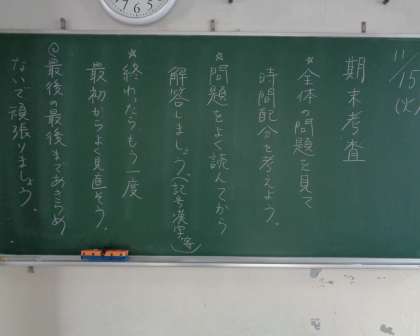 11/15(火)
期末考査
★全体の問題を見て
時間配分を考えよう。
★問題をよく読んでから
解答しましょう。(記号・漢字等)
★終わったらもう一度
最初からよく見直そう。
◎最後の最後まであきらめ
ないで頑張りましょう。